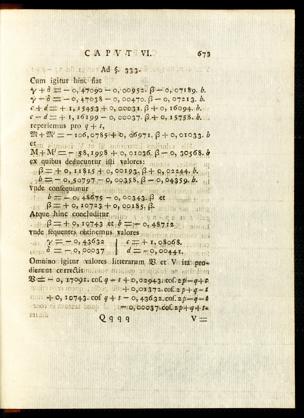 CAPVT VI. 673
Ad §. 333.
Cum igitur hinc fiat
γ + δ = − 0,47090 − 0,00952. β − 0,07189. b.
γ − δ = − 0,47038 − 0,00470. β − 0,07213. b.
c + d = + 1,15453 + 0,00031. β + 0,16094. b.
c − d = + 1,16199 − 0,00037. β + 0,15758. b.
reperiemus pro q + s,
M + M' = − 106,0785 + 0,06971. β + 0,01033. b
et
M + M' = − 58,1998 + 0,01036. β − 0,30568. b
ex quibus deducuntur isti valores:
β = + 0,11815 + 0,00193. β + 0,02244. b.
b = − 0,50797 − 0,00358. β − 0,04359. b.
vnde consequimur
b = − 0,48675 − 0,00343. β et
β = + 0,10723 + 0,00185. β.
Atque hinc concluditur
β = + 0,10743 et b = − 0,48712
vnde sequentes obtinemus valores
γ = − 0,43632 | c = + 1,08068.
δ = − 0,00037 | d = − 0,00441.
Omnino igitur valores litterarum 𝔙 et V ita pro-
dierent correcti:
𝔙 = − 0,17091. cos. q − s + 0,02943. cos. 2p − q + s
+ 0,01372. cos. 2p + q − s
+ 0,10743. cos. q + s − 0,43632. cos. 2p − q − s
− 0,00037. cos. 2p + q + s.
Qqqq V =